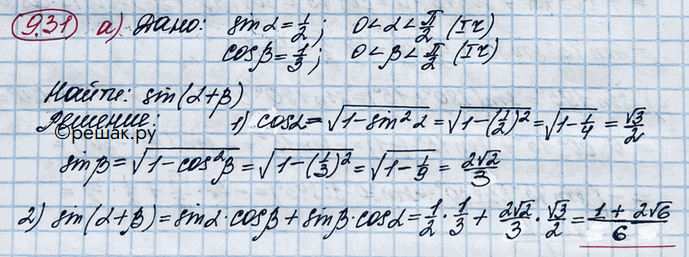 9.31 а) Дано: sinα = 1/2; 0 < α < π/2 (I ч)
cosβ = 1/3; 0 < β < π/2 (I ч)
Найти: sin(α+β)
Решение: 1) cosα = √(1−sin²α) = √(1−(1/2)²) = √(1−1/4) = √3/2
©решак.ру
sinβ = √(1−cos²β) = √(1−(1/3)²) = √(1−1/9) = 2√2/3
2) sin(α+β) = sinα·cosβ + sinβ·cosα = 1/2·1/3 + 2√2/3·√3/2 = (1+2√6)/6